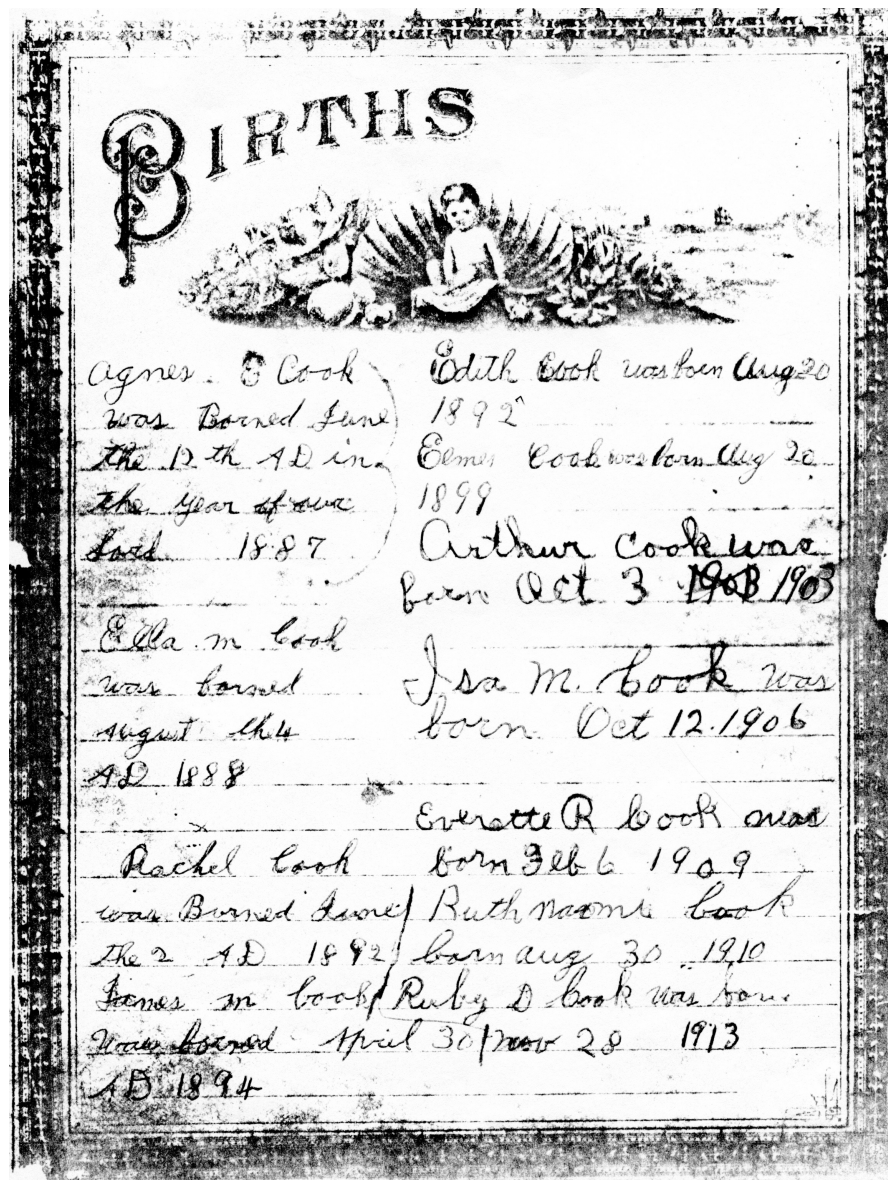 BIRTHS
Agnes E Cook
was Borned June
the 12 th AD in
the year of our
Lord 1887
Ella m Cook
was borned
August the 4
AD 1888
Rachel Cook
was Borned June
the 2 AD 1892
James m Cook
was borned April 30
AD 1894
Edith Cook was born Aug 20
1892
Elmer Cook was born Aug 20
1899
Arthur Cook was
born Oct 3 1903
Isa M. Cook was
born Oct 12. 1906
Everette R Cook was
born Feb 6 1909
Ruth Naomi Cook
born aug 30 1910
Ruby D Cook was born
nov 28 1913